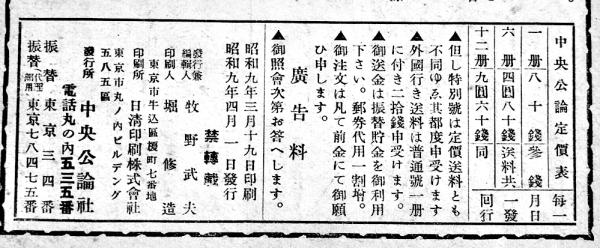 中央公論定價表
毎月一回
一日發行
一册 八十錢 參錢
六册 四圓八十錢 送料共
十二册 九圓六十錢 同
▲但し特別號は定價送料とも
不同ゆゑ其都度申受けます
▲外國行き送料は普通號一册
に付き二拾錢申受けます。
▲御送金は振替貯金を御利用
下さい。郵券代用一割增。
▲御注文は凡て前金にて御願
ひ申します。
廣告料
▲御照會次第お答へします。
昭和九年三月十九日印刷
昭和九年四月一日發行
禁轉載
發行兼編輯人 牧野武夫
印刷人 堀修造
東京市牛込區榎町七番地
印刷所 日清印刷株式會社
東京市丸ノ內ビルデング
五八五區
發行所 中央公論社
電話丸の內五三五番
振替東京三四番
振替 東京七八四七五番